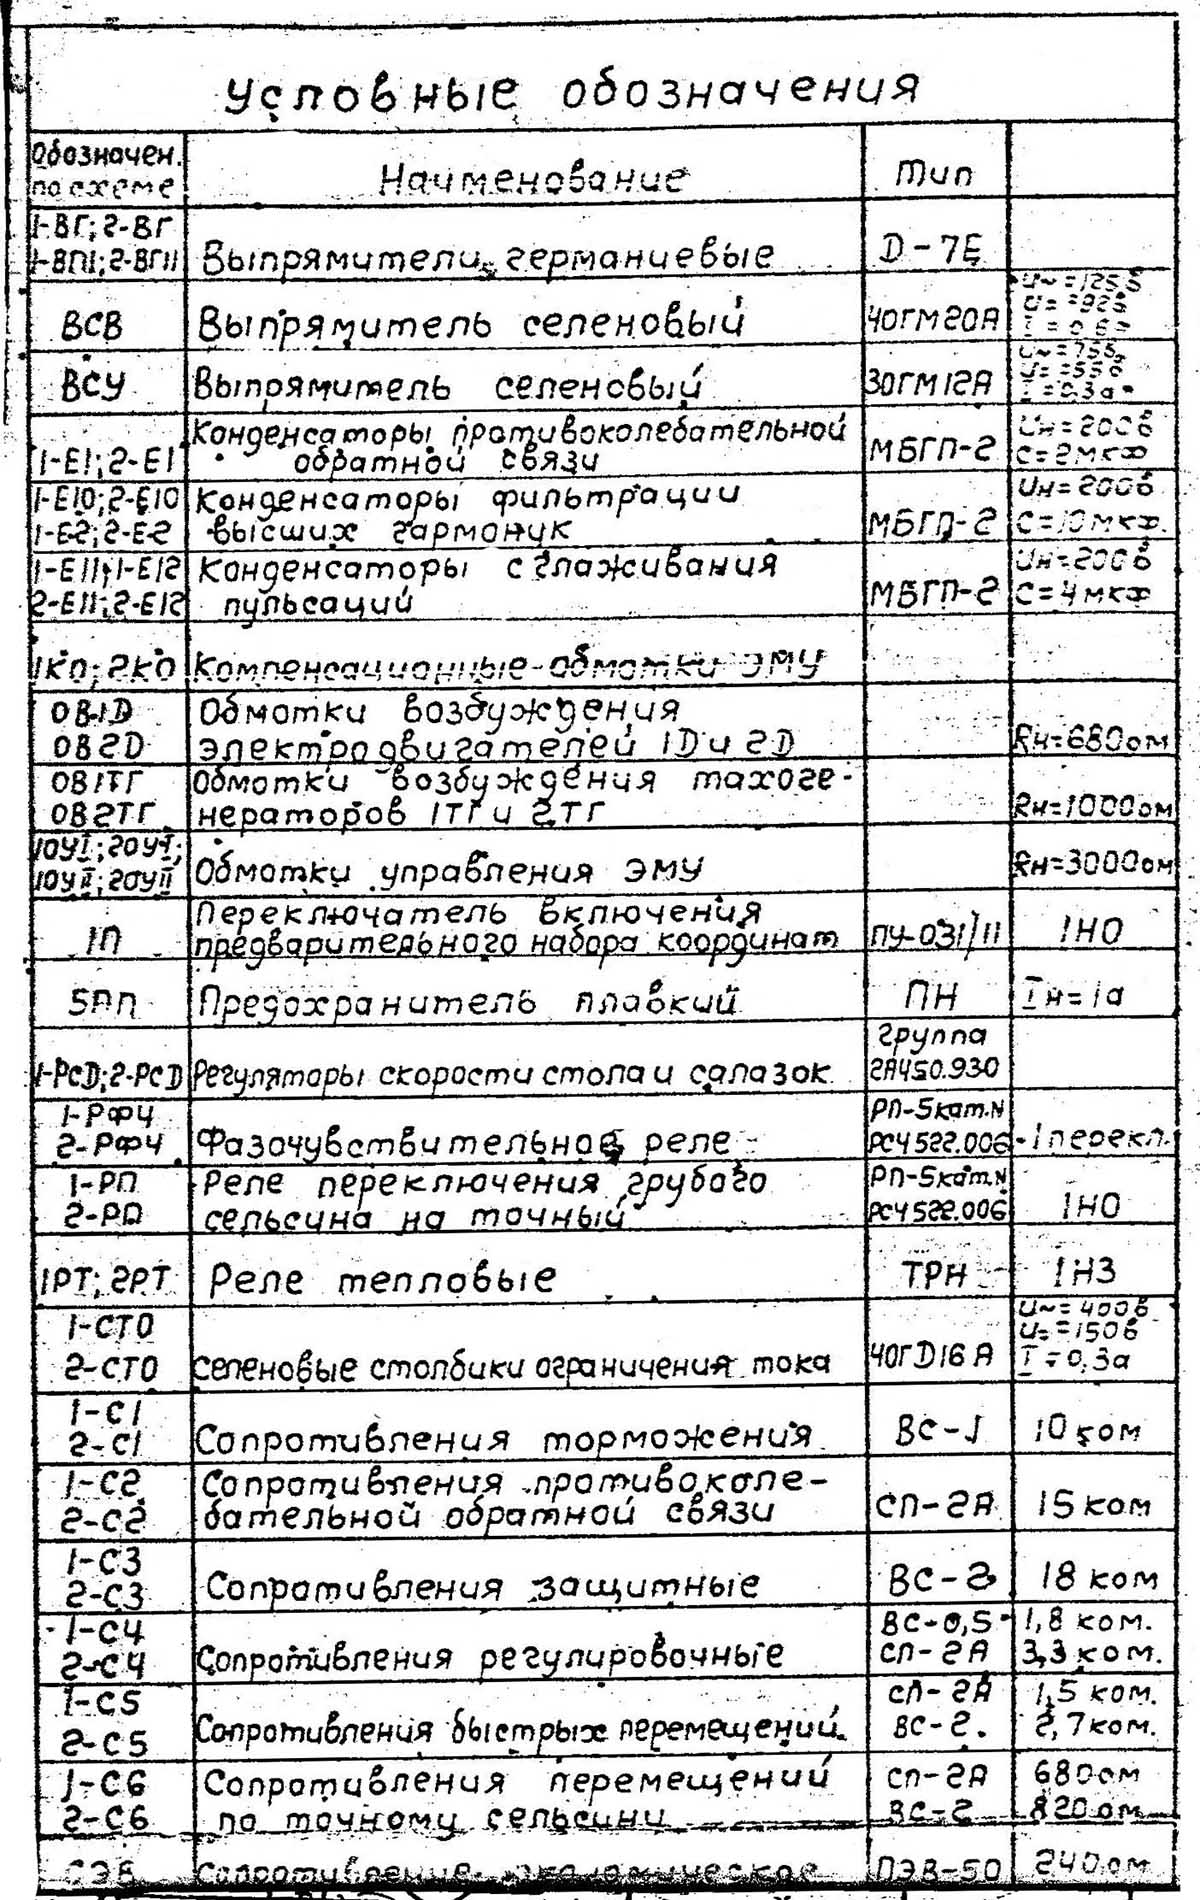 Условные обозначения
Обозначен. по схеме
Наименование
Тип
1-ВГ; 2-ВГ
1-ВГ11; 2-ВГ11
Выпрямители германиевые
Д-7Е
ВСВ
Выпрямитель селеновый
40ГМ20А
U~=125в
U= =92в
ВСУ
Выпрямитель селеновый
30ГМ12А
I=0,3а
1-Е1; 2-Е1
Конденсаторы противоколебательной
обратной связи
МБГП-2
Uн=200в
С=2мкф
1-Е10; 2-Е10
1-Е2; 2-Е2
Конденсаторы фильтрации
высших гармоник
МБГП-2
Uн=200в
С=10мкф.
1-Е11; 1-Е12
2-Е11; 2-Е12
Конденсаторы сглаживания
пульсаций
МБГП-2
Uн=200в
С=4мкф
1КО; 2КО
Компенсационные обмотки ЭМУ
ОВ1Д
ОВ2Д
Обмотки возбуждения
электродвигателей 1Д и 2Д
Rн=680ом
ОВ1ТГ
ОВ2ТГ
Обмотки возбуждения тахоге-
нераторов 1ТГ и 2ТГ
Rн=1000ом
1ОУI; 2ОУI;
1ОУII; 2ОУII
Обмотки управления ЭМУ
Rн=3000ом
1П
Переключатель включения
предварительного набора координат
ПУ-031/11
1НО
5ПП
Предохранитель плавкий
ПН
Iн=1а
1-РСД; 2-РСД
Регуляторы скорости стола и салазок
группа
2А450.930
1-РФЧ
2-РФЧ
Фазочувствительное реле
РП-5кат.N
РС4522.006
-1 перекл.
1-РП
2-РП
Реле переключения грубого
сельсина на точный
РП-5кат.N
РС4522.006
1НО
1РТ; 2РТ
Реле тепловые
ТРН
1НЗ
1-СТО
2-СТО
Селеновые столбики ограничения тока
40ГД16А
U~=400в
U= =150в
I=0,3а
1-С1
2-С1
Сопротивления торможения
ВС-1
10 ком
1-С2
2-С2
Сопротивления противоколе-
бательной обратной связи
СП-2А
15 ком
1-С3
2-С3
Сопротивления защитные
ВС-2
18 ком
1-С4
2-С4
Сопротивления регулировочные
ВС-0,5
СП-2А
1,8 ком.
3,3 ком.
1-С5
2-С5
Сопротивления быстрых перемещений
СП-2А
ВС-2.
1,5 ком.
2,7 ком.
1-С6
2-С6
Сопротивления перемещений
по точному сельсини
СП-2А
ВС-2
680ом
820 ом
СЭВ
Сопротивление экономическое
ПЭВ-50
240 ом